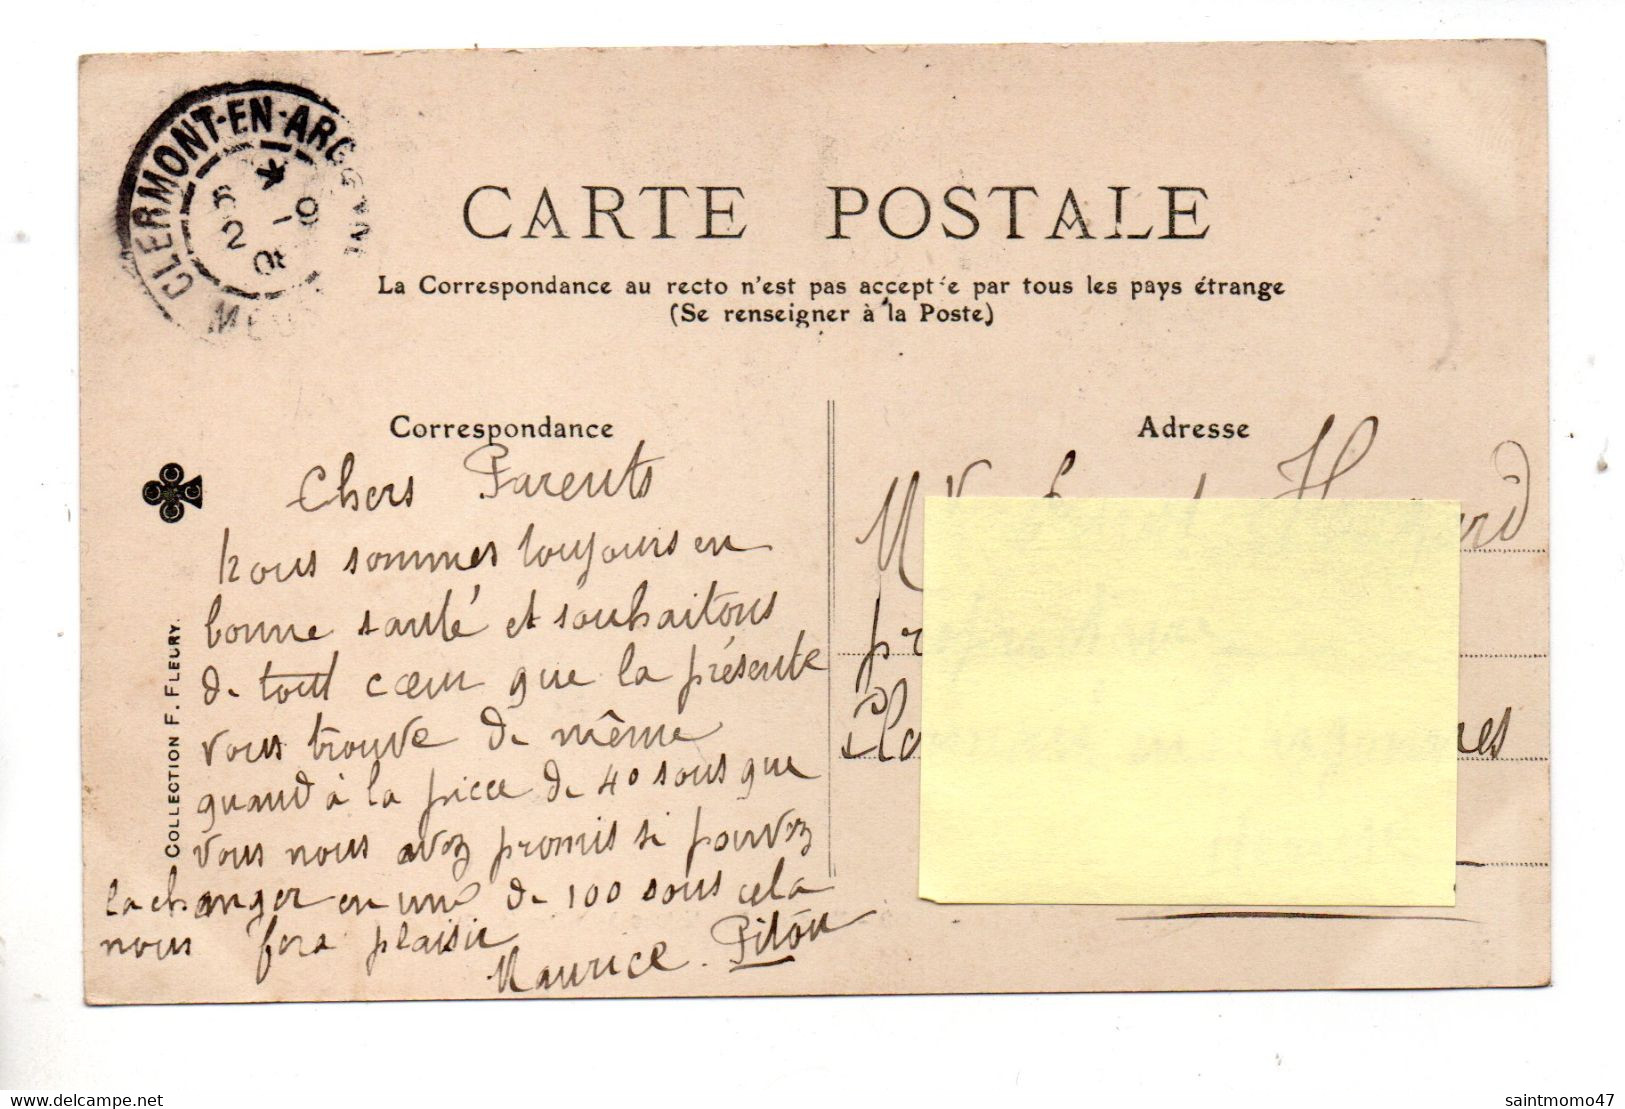 CLERMONT-EN-ARGONNE
5
2 -9
08
MEUSE
CARTE POSTALE
La Correspondance au recto n'est pas accept e par tous les pays étrange
(Se renseigner à la Poste)
Correspondance
Adresse
COLLECTION F. FLEURY.
Chers Parents
Nous sommes toujours en
bonne santé et souhaitons
de tout cœur que la présente
vous trouve de même
quand à la piece de 40 sous que
vous nous avez promis si pouvez
la changer en une de 100 sous cela
nous fera plaisir
Maurice. Piton
delcampe.net
saintmomo47